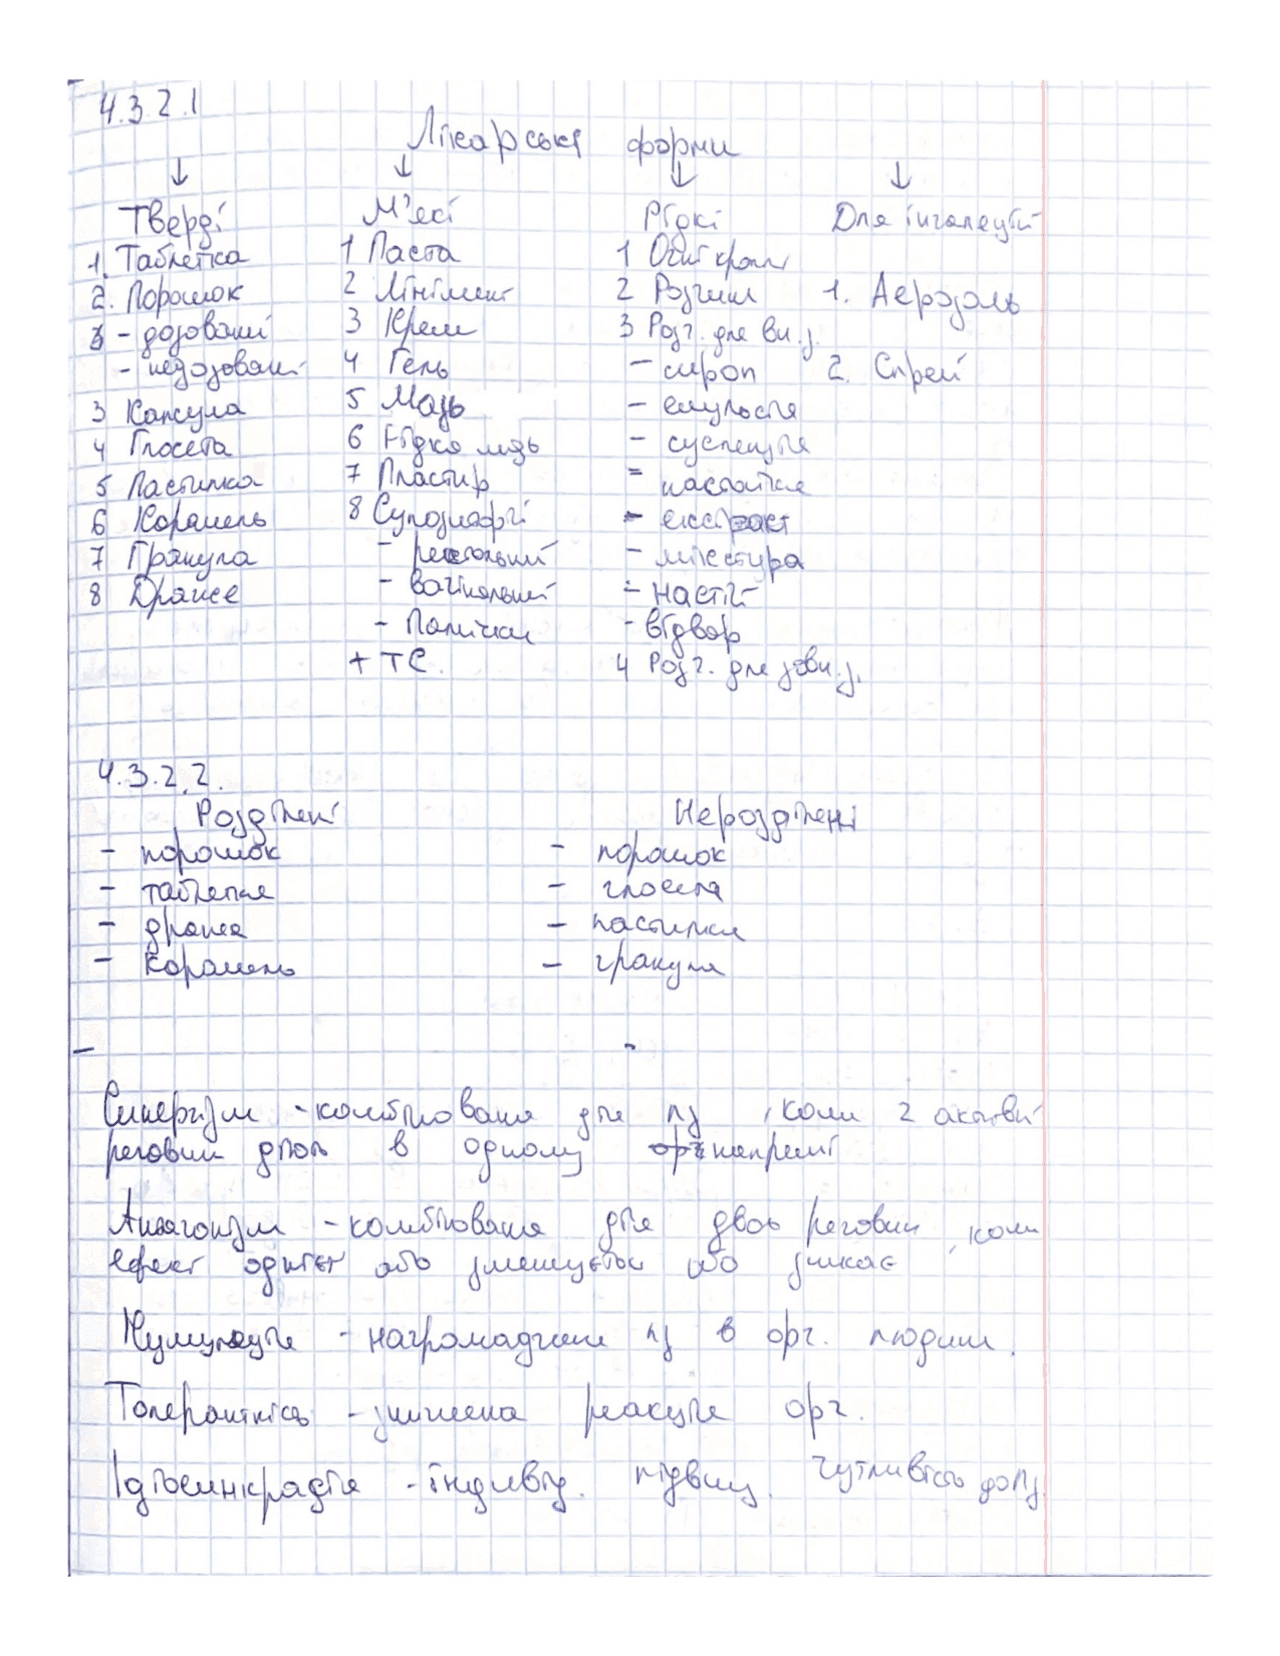 4.3.2.1
Лікарські форми
↓ ↓ ↓ ↓
Тверді М'які Рідкі Для інгаляцій
1. Таблетка 1 Паста 1 Очні краплі
2. Порошок 2 Лінімент 2 Розчин 1. Аерозоль
- дозовані 3 Крем 3 Розч. для вн. з.
- недозовані 4 Гель - сироп 2. Спрей
3 Капсула 5 Мазь - емульсія
4 Глосета 6 Рідка мазь - суспензія
5 Пастилка 7 Пластир - настойка
6 Карамель 8 Супозиторії - екстракт
7 Гранула - ректальний - мікстура
8 Драже - вагінальний - настій
- Палички - відвар
+ ТС. 4 Розч. для зовн. з.
4.3.2.2.
Розділені Нерозділенні
- порошок - порошок
- таблетка - глосета
- драже - пастилки
- карамель - гранула
Синергізм - комбінована дія лз, коли 2 активні
речовин діють в одному напрямі
Антагонізм - комбінована дія двох речовин, коли
ефект однієї або зменшується або зникає
Кумуляція - нагромадження лз в орг. людини.
Толерантність - знижена реакція орг.
Ідіосинкразія - індивід. підвищ. чутливість до лз.